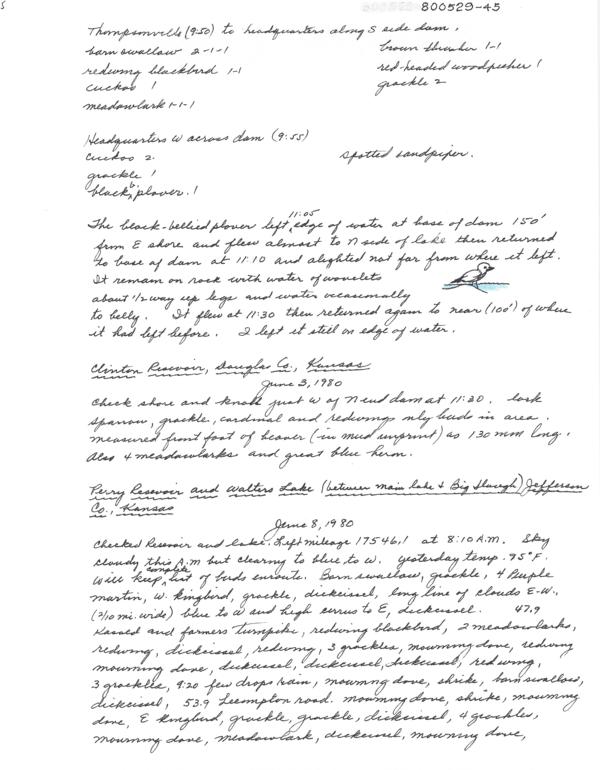 800529-45
Thompsonville (9:50) to headquarters along S side dam.
barn swallow 2-1-1 brown thrasher 1-1
redwing blackbird 1-1 red-headed woodpecker 1
cuckoo 1 grackle 2
meadowlark 1-1-1
Headquarters W across dam (9:55)
cuckoo 2. spotted sandpiper.
grackle 1
black b. plover. 1
The black-bellied plover left 11:05 edge of water at base of dam 150'
from E shore and flew almost to N side of lake then returned
to base of dam at 11:10 and alighted not far from where it left.
It remain on rock with water of wavelets
about 1/2 way up legs and water occasionally
to belly. It flew at 11:30 then returned again to near (100') of where
it had left before. I left it still on edge of water.
Clinton Resevoir, Douglas Co., Kansas
June 3, 1980
Check shore and knoll just W of N end dam at 11:30. lark
sparrow, grackle, cardinal and redwings nly birds in area.
measured front foot of beaver (in mud imprint) as 130 mm long.
Also 4 meadowlarks and great blue heron.
Perry Resevoir and Walters Lake (between main lake & Big Slough) Jefferson
Co., Kansas
June 8, 1980
Checked Resevoir and lake. Left mileage 17546.1 at 8:10 A.M. Sky
cloudy this A.m but clearing to blue to W. yesterday temp. 95°F.
Will keep complete list of birds enroute. Barn swallow, grackle, 4 Purple
martin, W. kingbird, grackle, dickcissel, long line of clouds E-W.,
(2/10 mi. wide) blue to W and high cirrus to E, dickcissel. 47.9
Kasold and farmers turnpike, redwing blackbird, 2 meadowlarks,
redwing, dickcissel, redwing, 3 grackles, mourning dove, redwing
mourning dove, dickcissel, dickcissel, dickcissel, redwing,
3 grackles, 9:20 few drops rain, mourning dove, shrike, barn swallow,
dickcissel, 53.9 Lecompton road. mourning dove, shrike, mourning
dove, E kingbird, grackle, grackle, dickcissel, 4 grackles,
mourning dove, meadowlark, dickcissel, mourning dove,